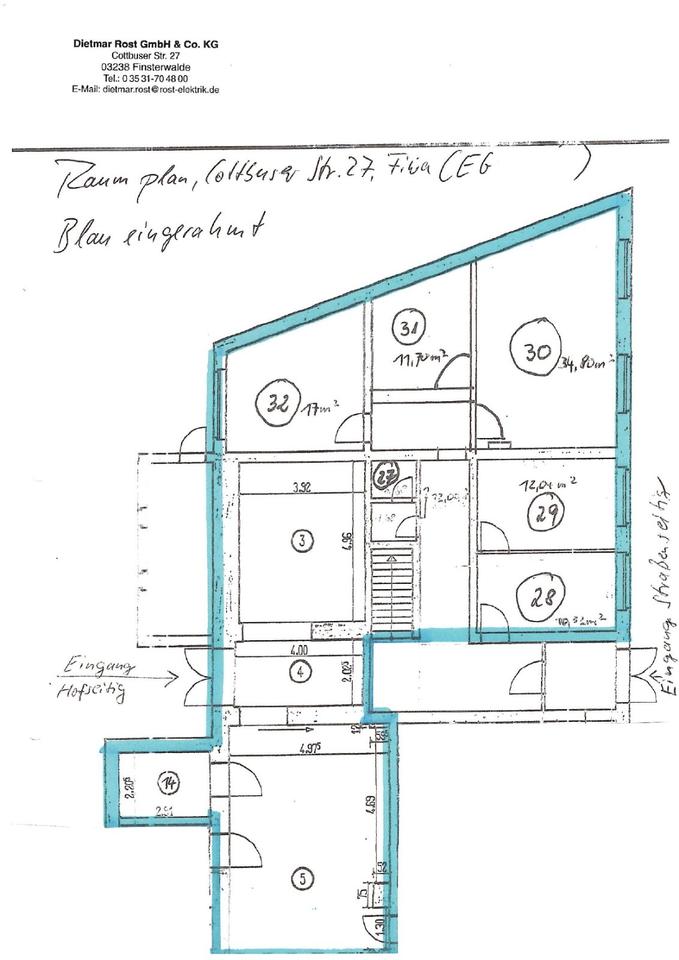 Dietmar Rost GmbH & Co. KG
Cottbuser Str. 27
03238 Finsterwalde
Tel.: 0 35 31-70 48 00
E-Mail: dietmar.rost@rost-elektrik.de
Raum plan, Cottbuser Str. 27, Fiwa (EG )
Blau eingerahmt
31
11,70 m²
30
34,80 m²
32
17 m²
27
3.92
4.96
3
12,04 m²
29
28
4.00
4
2.02⁵
Eingang
Hofseitig
Eingang Straßenseitig
4.97⁵
14
2.20⁵
2.51
4.69
5
75
1.30